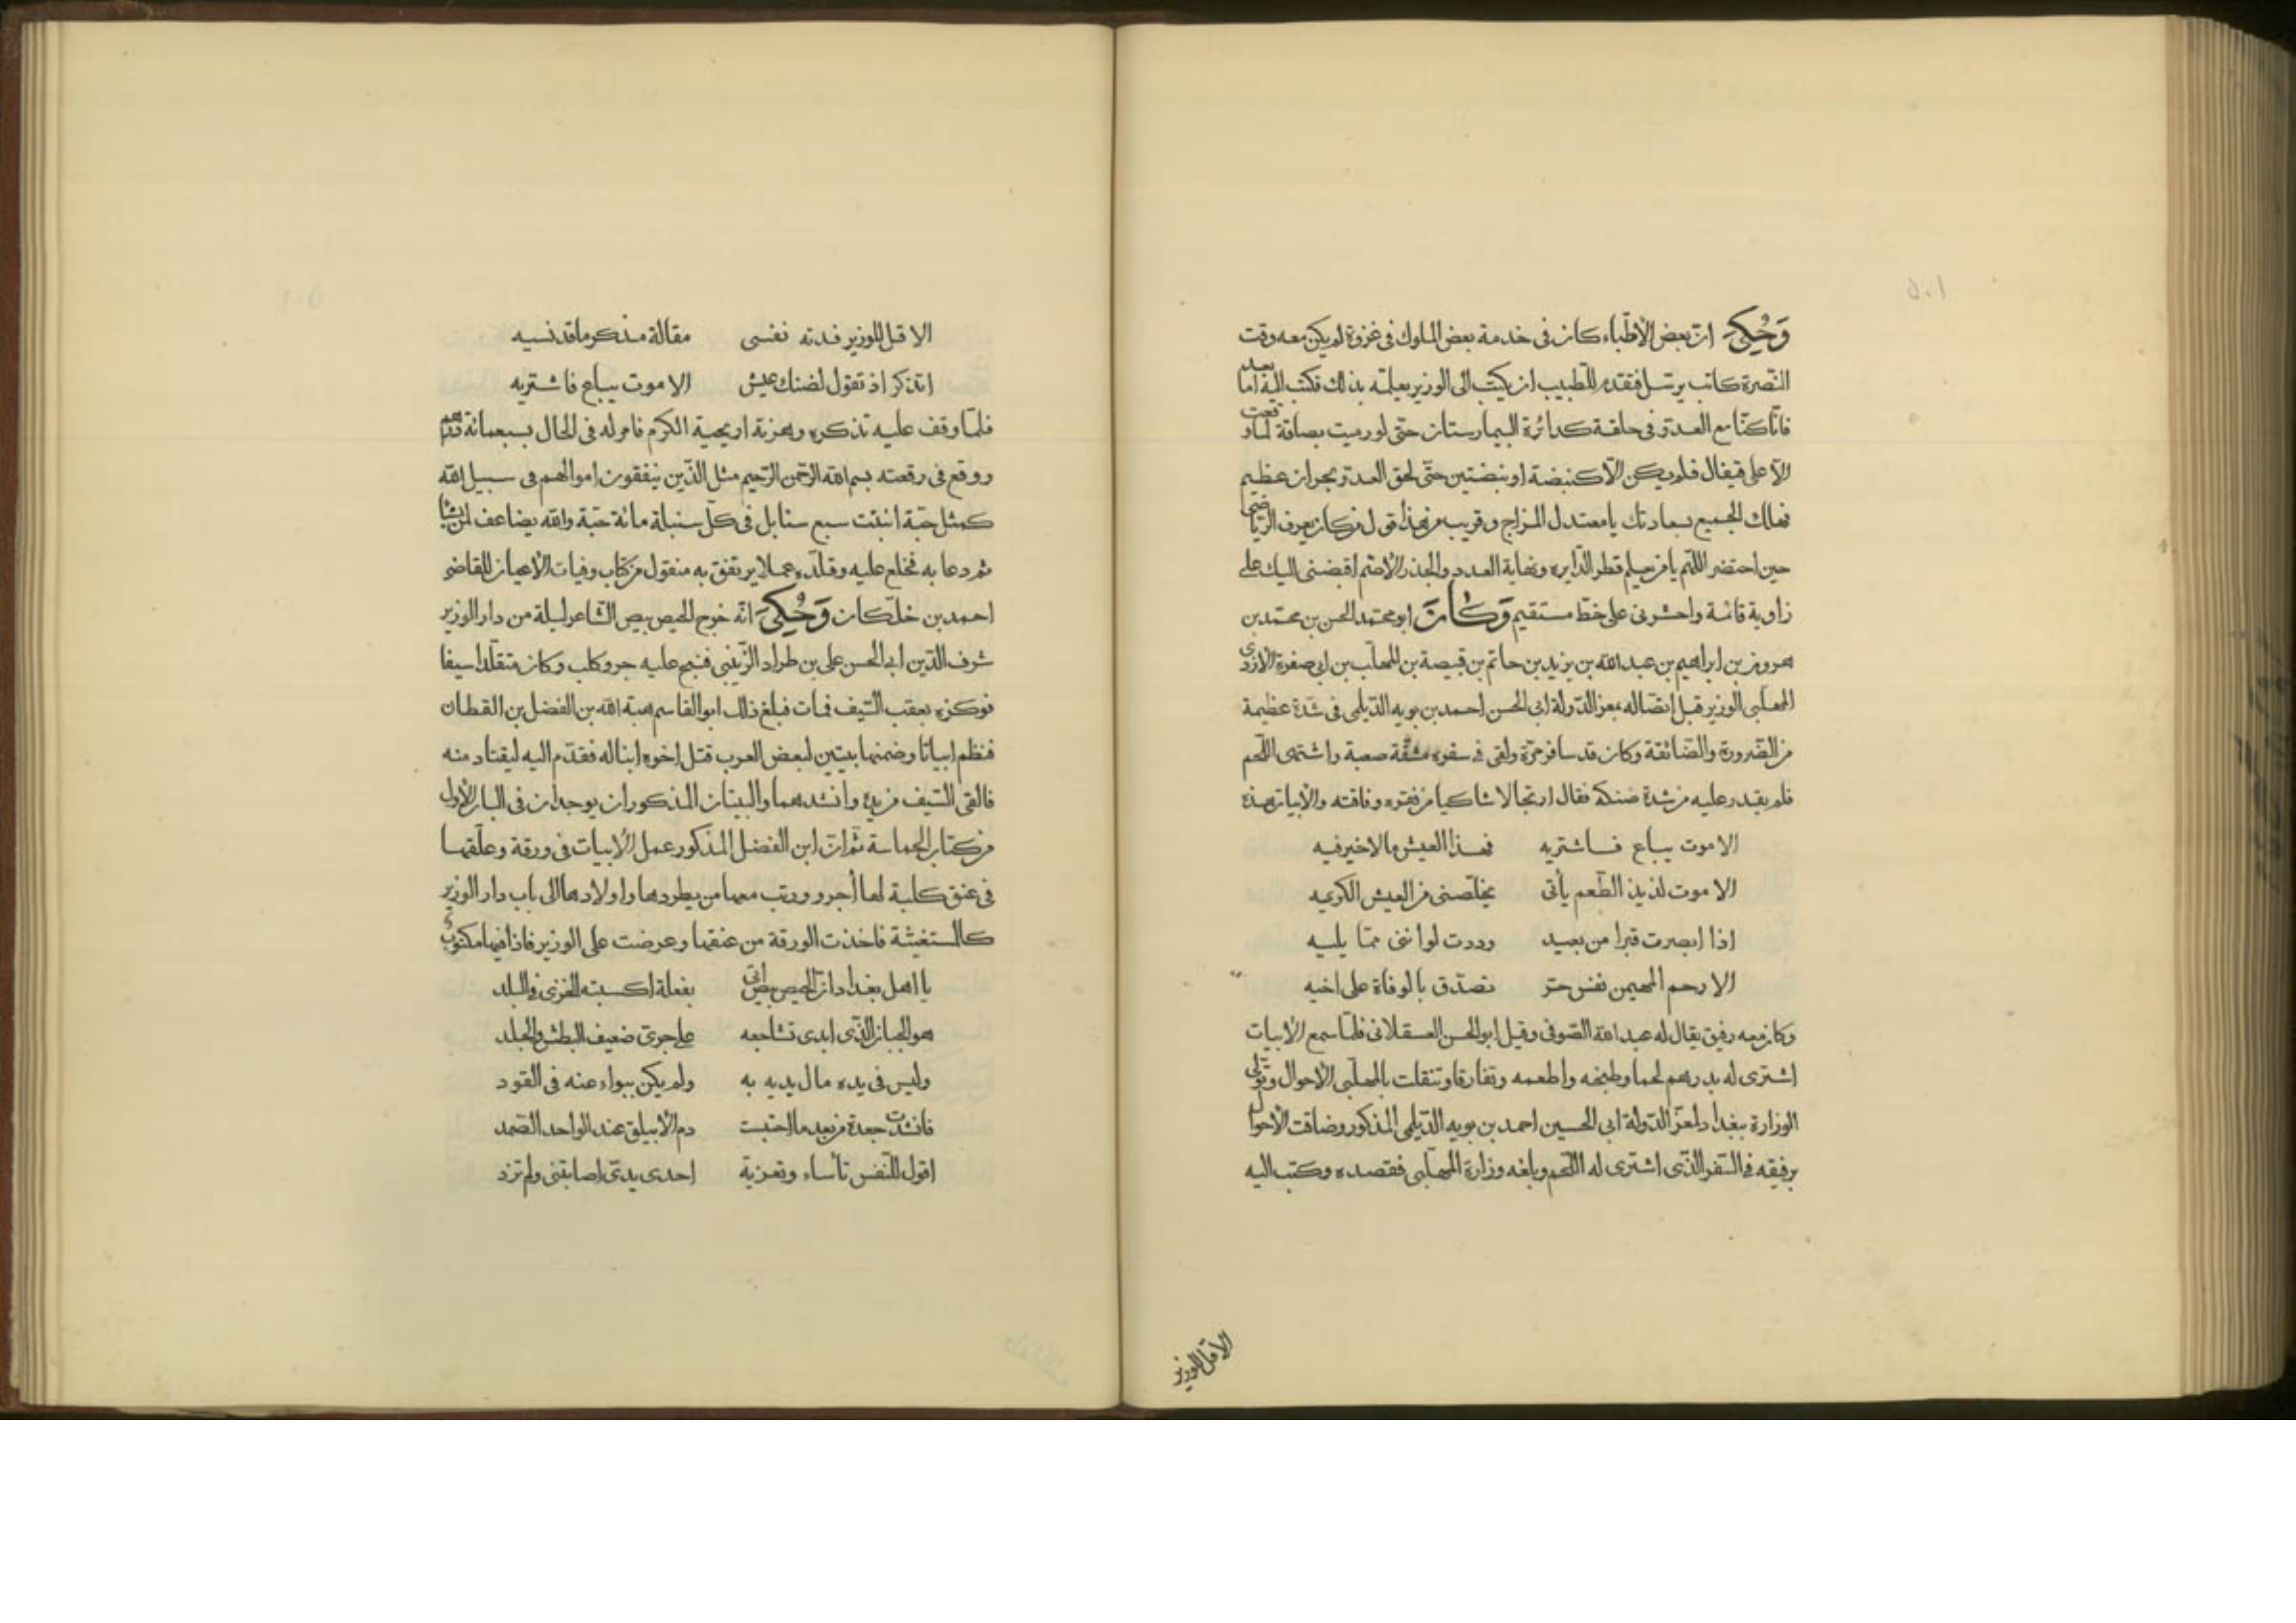 وَحُكِيَ انّ بعض الأطباء كان فى خدمة بعض الملوك فى غزوة لم يكن معه وقت
النّصرة كاتب يرسّل فتقدم للطبيب ان يكتب الى الوزير يعلمه بذلك فكتب اليه اما بعد
فانّا كنّا مع العدوّ فى حلقة كدائرة البيمارستان حتّى لو رميت بصاقة لما وقعت
الّا على قيفال فلم يكن الّا كنبضة او نبضتين حتّى لحق العدوّ بحران عظيم
فهلك الجميع بسعادتك يا معتدل المزاج وقريب من هذا قول من كان يعرف الرياضى
حين احتضر اللّهم يا من يعلم قطر الدّايره ونهاية العدد والجذر الأصم اقبضنى اليك على
زاوية قائمة واحشرنى على خطّ مستقيم وَكَانَ ابو محمّد الحسن بن محمّد بن
هرون بن ابراهيم بن عبد الله بن يزيد بن حاتم بن قبيصة بن المهلّب بن ابى صفرة الأزدى
المهلّبى الوزير قبل اتصاله بمعز الدّولة ابى الحسن احمد بن بويه الدّيلمى فى شدّة عظيمة
من الضّرورة والضّائقة وكان قد سافر مرّة ولقى فى سفره مشقّة صعبة واشتهى اللّحم
فلم يقدر عليه من شدة ضنكه فقال ارتجالا شاكيا من فقره وفاقته والأبيات هذه
الا موت يباع فاشتريه فهذا العيش مالا خير فيه
الا موت لذيذ الطّعم يأتى يخلّصنى من العيش الكريه
اذا ابصرت قبرا من بعيد وددت لو اننى ممّا يليه
الا رحم المهيمن نفس حرّ تصدّق بالوفاة على اخيه
وكان معه رفيق يقال له عبد الله الصّوفى وقيل ابو الحسن العسقلانى فلمّا سمع الأبيات
اشترى له بدرهم لحما وطبخه واطعمه وتفارقا وتنقلت بالمهلّبى الأحوال وتولى
الوزارة ببغداد لمعزّ الدّولة ابى الحسين احمد بن بويه الدّيلمى المذكور وضاقت الأحوال
برفيقه فى السّفر الذّى اشترى له اللّحم وبلغه وزارة المهلّبى فقصده وكتب اليه
الا قل للوزير
الا قل للوزير فدته نفسى مقالة مذكر ما قد نسيه
اتذكر اذ تقول لضنك عيش الا موت يباع فاشتريه
فلمّا وقف عليه تذكره وهزته اريحية الكرم فامر له فى الحال بسبعمائة درهم
ووقع فى رقعته بسم الله الرّحمن الرّحيم مثل الذّين ينفقون اموالهم فى سبيل الله
كمثل حبّة انبتت سبع سنابل فى كلّ سنبلة مائة حبّة والله يضاعف لمن يشا
ثم دعا به فخلع عليه وقلّده عملا يرتفق به منقول من كتاب وفيات الأعيان للقاضى
احمد بن خلّكان وَحُكِيَ انّه خرج الحيص بيص الشّاعر ليلة من دار الوزير
شرف الدّين ابى الحسن على بن طراد الزّينبى فنبح عليه جرو كلب وكان متقلّدا سيفا
فوكزه بعقب السّيف فمات فبلغ ذلك ابو القاسم هبة الله بن الفضل بن القطان
فنظم ابياتا وضمنها بيتين لبعض العرب قتل اخوه ابنا له فقدّم اليه ليقتاد منه
فالقى السّيف من يده وانشدهما والبيتان المذكوران يوجدان فى الباب الأول
من كتاب الحماسة ثم انّ ابن الفضل المذكور عمل الأبيات فى ورقة وعلّقها
فى عنق كلبة لها أجرو ورتب معها من يطردها واولادها الى باب دار الوزير
كالمستغيثة فاخذت الورقة من عنقها وعرضت على الوزير فاذا فيها مكتوب
يا اهل بغداد انّ الحيص بيص أتى بفعلة اكسبته الخزى فى البلد
هو الجبان الذّى ابدى تشاجعه على جرىّ ضعيف البطش والجلد
وليس فى يده مال يديه به ولم يكن ببواء عنه فى القود
فانشدت جعدة من بعد ما احتسبت دم الأبيلق عند الواحد الصّمد
اقول للنّفس تأساء وتعزية احدى يدىّ اصابتنى ولم ترد